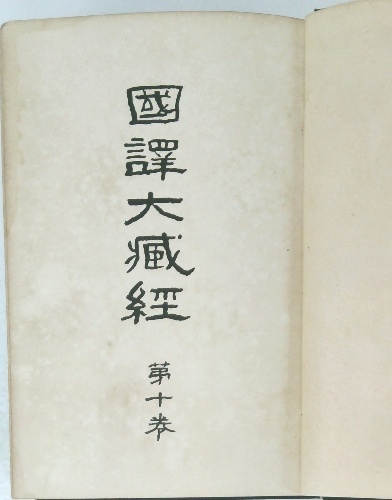 國譯大藏經
第十卷